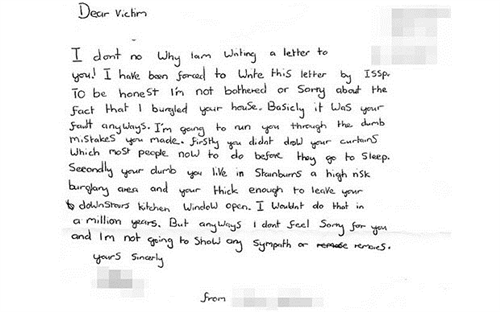 Dear Victim
I dont no Why Iam Writing a letter to
you! I have been forced to Write this letter by ISSP.
To be honest I'm not bothered or Sorry about the
fact that I burgled your house. Basicly it was your
fault anyways. I'm going to run you through the dumb
mistakes you made. Firstly you didnt drow your curtains
Which most people now to do before they go to Sleep.
Secondly your dumb you live in Stainburn a high risk
burglary area and your thick enough to leave your
downstairs kitchen Window open. I Wouldnt do that in
a million years. But anyways I dont feel Sorry for you
and Im not going to Show any Sympath or remose remores.
yours Sincerly
from